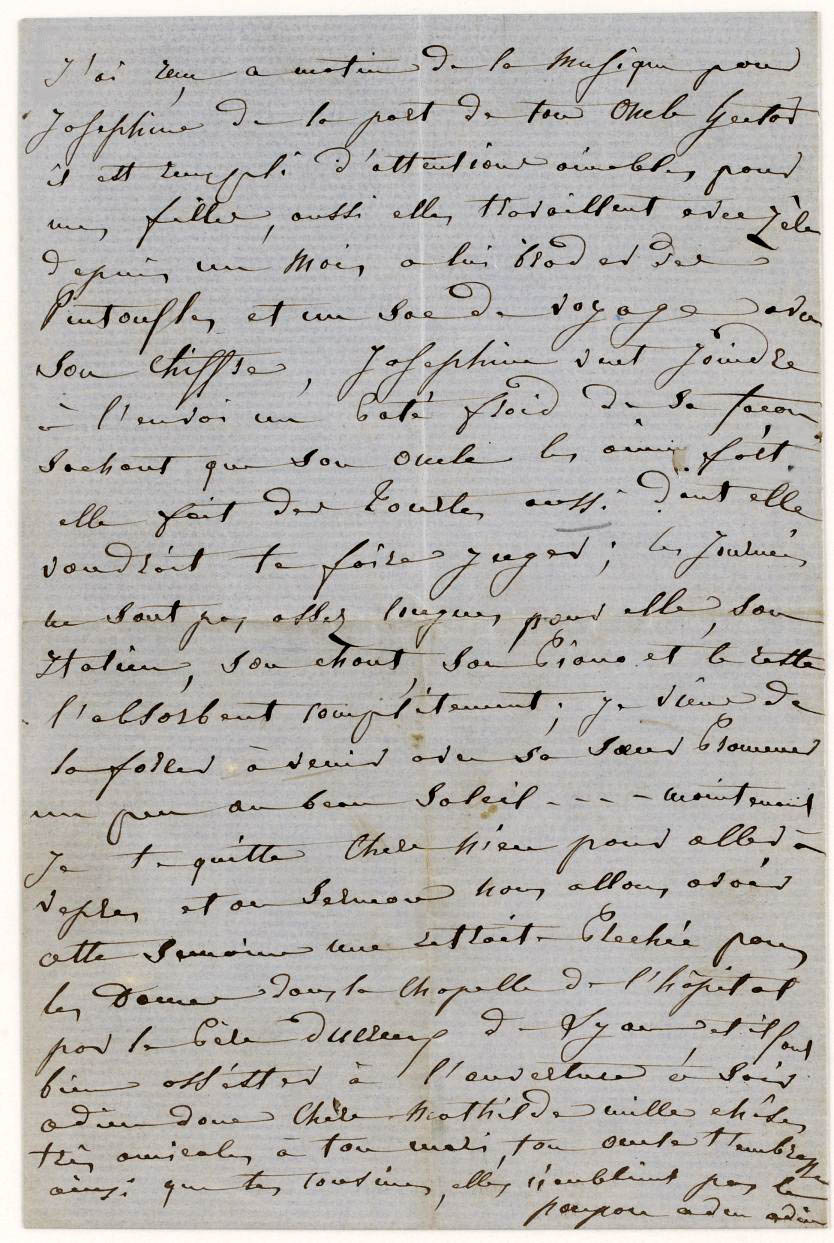 J'ai reçu ce matin de la Musique pour
Josephine de la part de ton Oncle Hector
il est rempli d'attentions aimables pour
mes filles, aussi elles travaillent avec Zèle
depuis un Mois a lui broder des
Pantoufles et un Sac de voyage avec
son chiffre, Josephine veut Joindre
à l'envoi un Paté froid de sa facon
Sachant que son oncle les aime fort
elle fait des Tourtes aussi dont elle
voudrait te faire Juger ; les Journées
ne sont pas assez longues pour elle, son
Italien, son chant, son Piano et le reste
l'absorbent complètement ; je viens de
la forcer à venir avec sa sœur Promener
un peu au beau Soleil - - - maintenant
Je te quitte Chère Nièce pour aller à
vepres et au Sermon nous allons avoir
cette Semaine une retraite Prechée pour
les Dames dans la Chapelle de l'hôpital
par le Père de Lyon et il faut
bien assister à l'ouverture ce soir
adieu donc Chère Mathilde mille choses
très amicales à ton mari, ton oncle t'embrasse
ainsi que tes cousines, elles n'oublient pas le
poupon adieu adieu